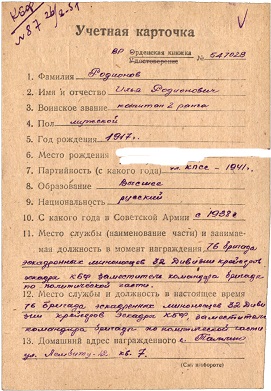 КБФ
№ 87 26/2-51
V
Учетная карточка
ВР Орденская книжка
Удостоверение № 547028
1. Фамилия Родионов
2. Имя и отчество Илья Родионович
3. Воинское звание капитан 2 ранга
4. Пол мужской
5. Год рождения 1917 г.
6. Место рождения
7. Партийность (с какого года) чл. КПСС - 1941 г.
8. Образование Высшее
9. Национальность русский
10. С какого года в Советской Армии с 1938 г
11. Место службы (наименование части) и зани-
маемая должность в момент награждения 76 бригада
эскадренных миноносцев 32 Дивизии крейсеров
эскадра КБФ заместитель командира бригады
по политической части.
12. Место службы и должность в настоящее время
76 бригада эскадренных миноносцев 32 Диви
зии крейсеров эскадра КБФ, заместитель
командира бригады по политической части
13. Домашний адрес награжденного г. Таллин
ул. кв. 7.
(См. на обороте)